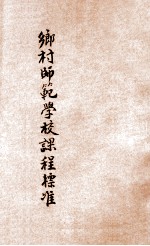 鄉村師範學校課程標准